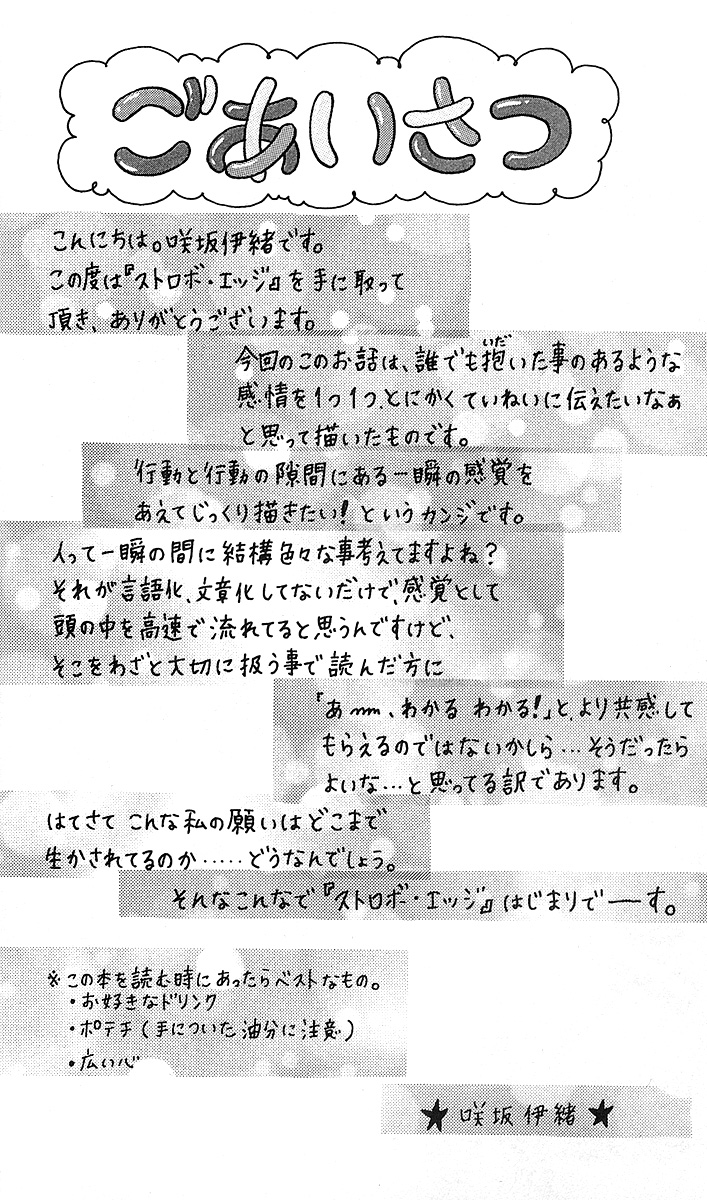 ごあいさつ
こんにちは。咲坂伊緒です。
この度は『ストロボ・エッジ』を手に取って
頂き、ありがとうございます。
今回のこのお話は、誰でも抱いた事のあるような
いだ
感情を1つ1つ、とにかくていねいに伝えたいなぁ
と思って描いたものです。
行動と行動の隙間にある一瞬の感覚を
あえてじっくり描きたい!というカンジです。
人って一瞬の間に結構色々な事考えてますよね?
それが言語化、文章化してないだけで、感覚として
頭の中を高速で流れてると思うんですけど、
そこをわざと大切に扱う事で読んだ方に
「あ〰、わかる わかる!」と、より共感して
もらえるのではないかしら…そうだったら
よいな…と思ってる訳であります。
はてさて こんな私の願いは どこまで
生かされてるのか……どうなんでしょう。
そんなこんなで『ストロボ・エッジ』はじまりで──す。
※この本を読む時にあったらベストなもの。
・お好きなドリンク
・ポテチ(手についた油分に注意)
・広い心
★ 咲坂伊緒 ★